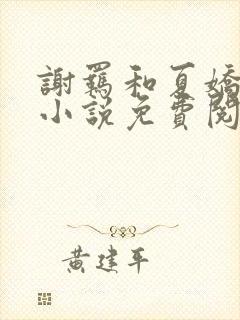 謝羈和夏嬌
小說免費閱
黃建平